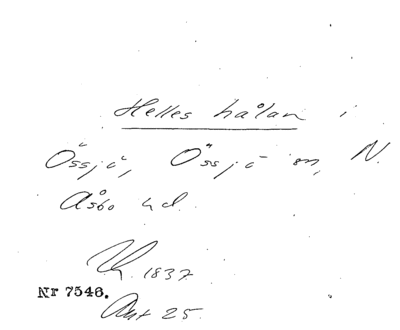 Helleshålan i
Össjö, Össjö sn, N.
Åsbo hd.
Uk. 1837
Nr 7546.
Akt 25.